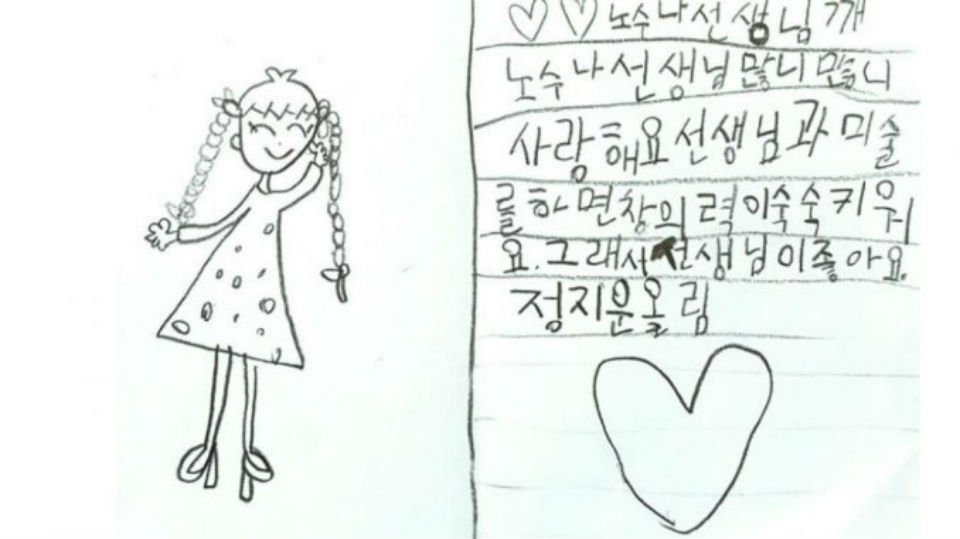 ♡♡노수나선생님께
노수나선생님많니많니
사랑해요선생님과미술
를하면창의력이쑥쑥키워
요.그래서선생님이좋아요.
정지운올림